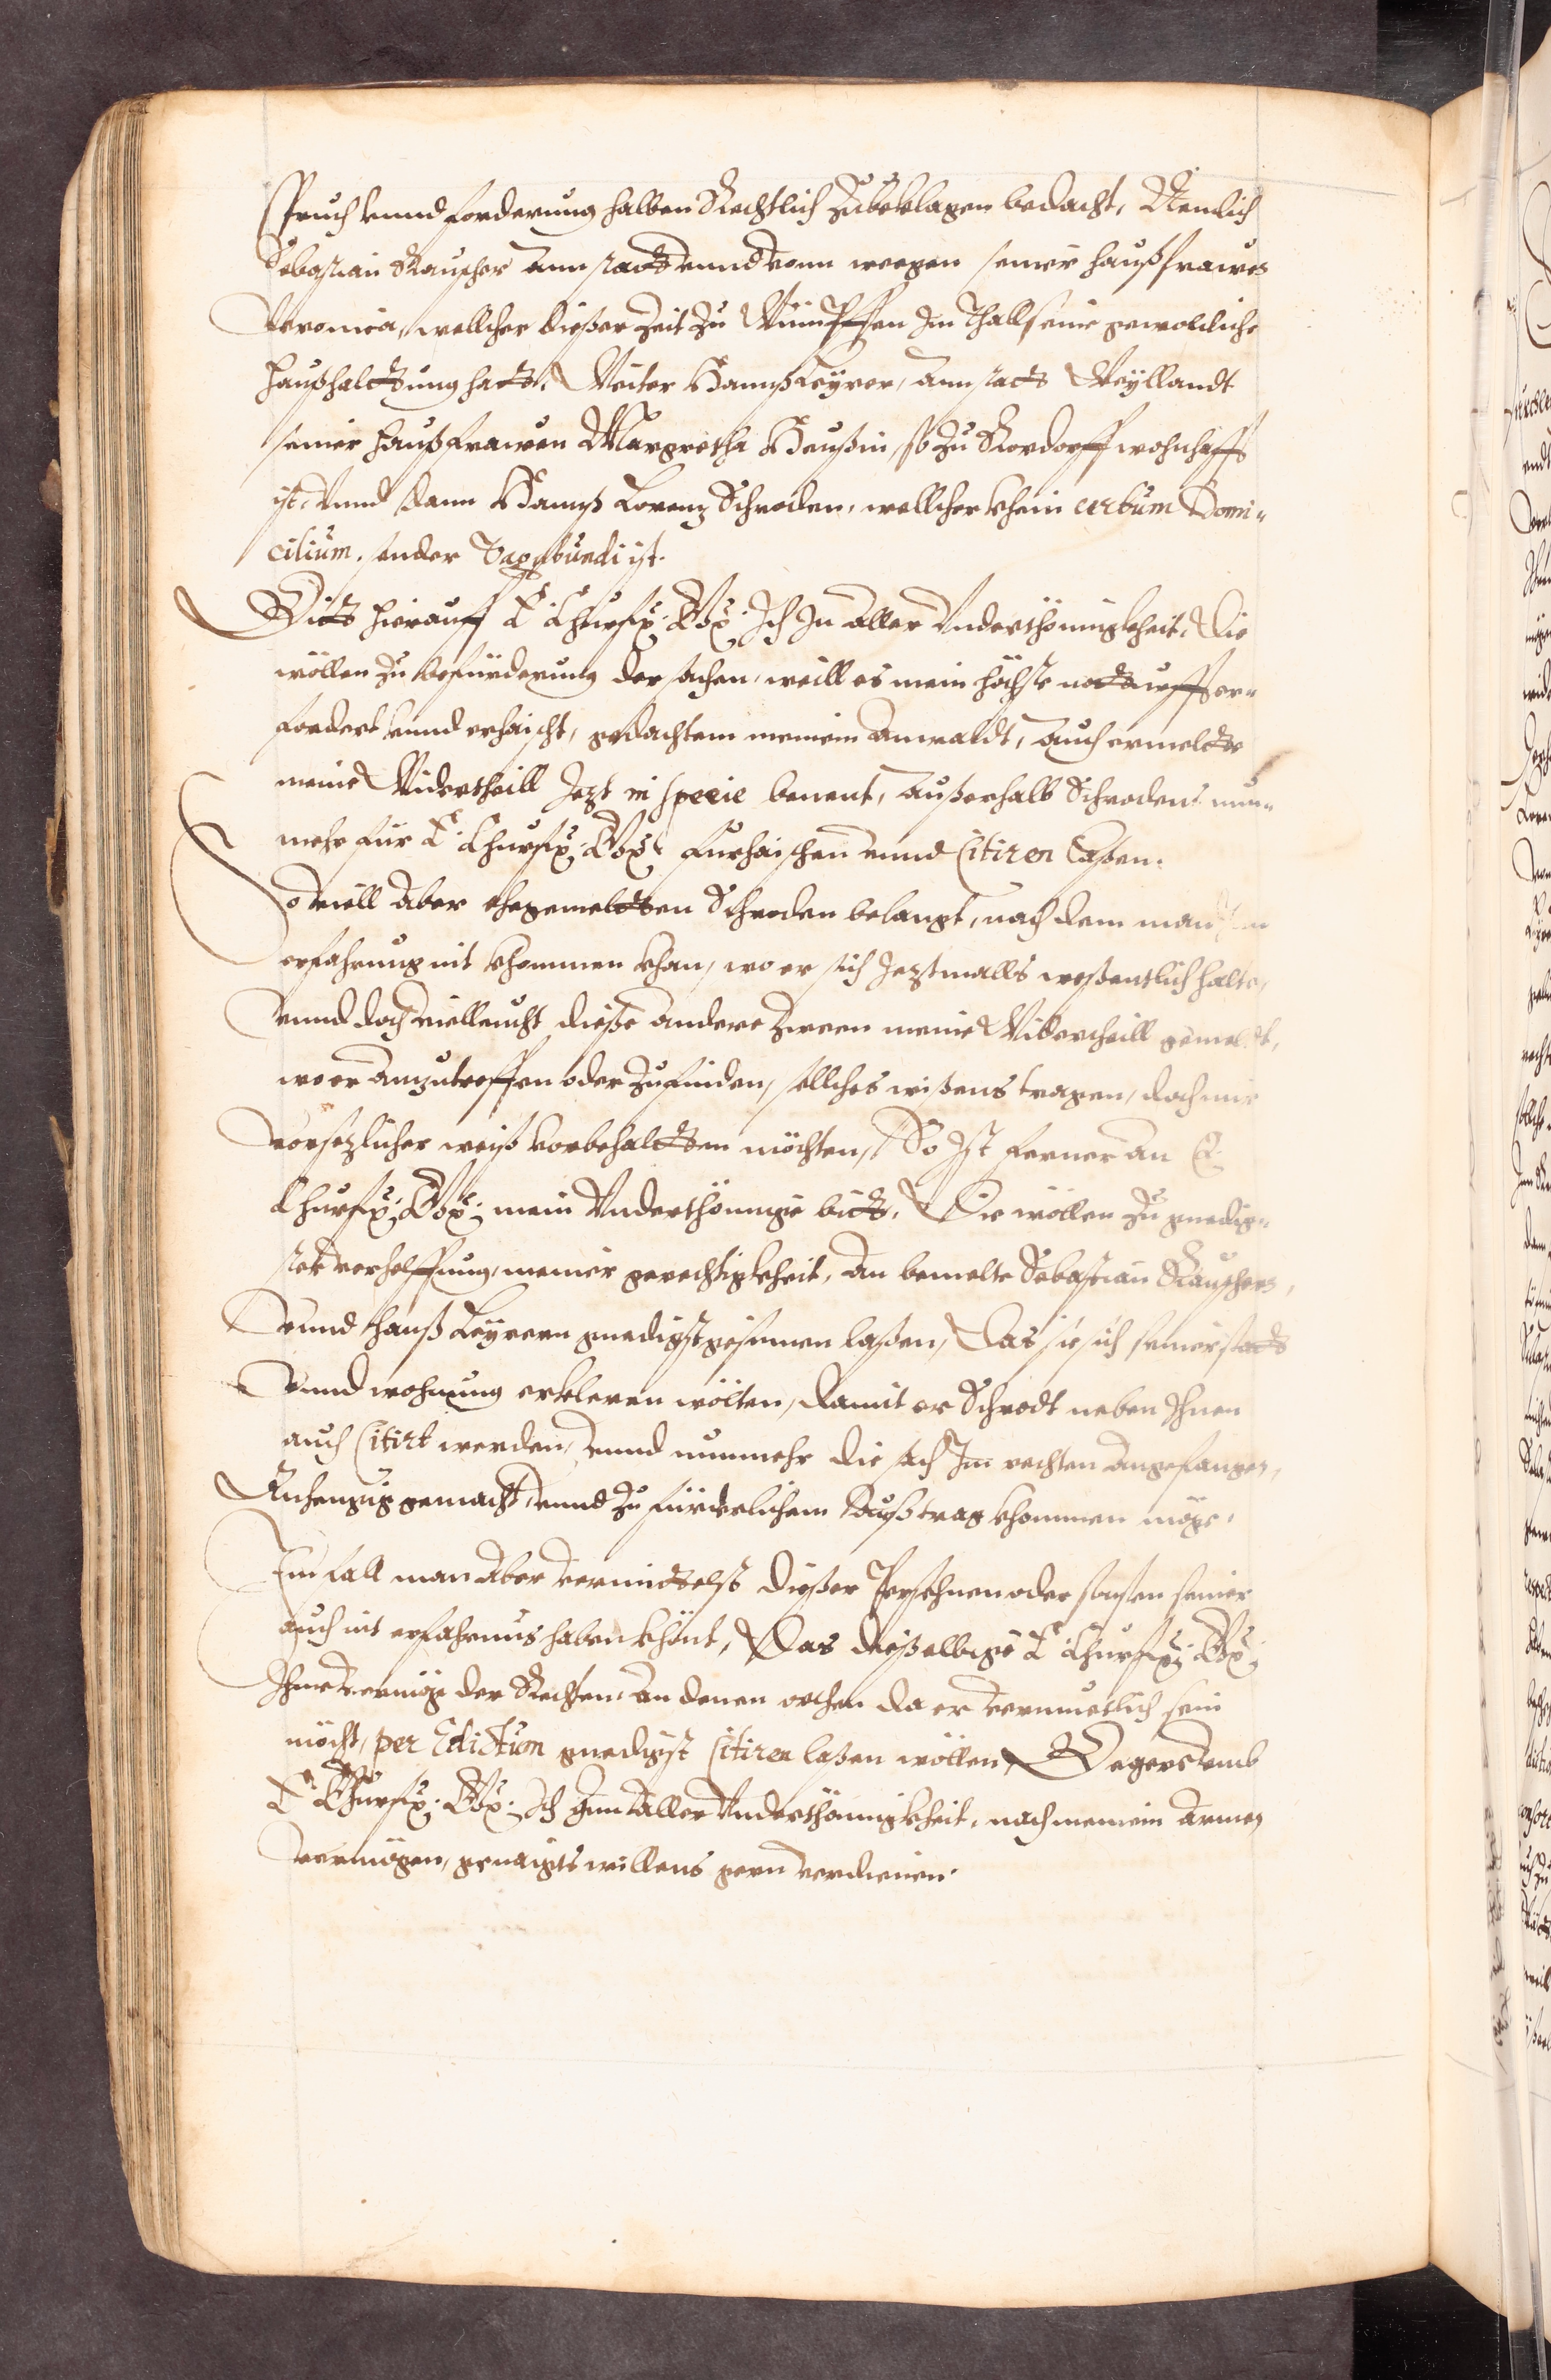 spruch vnnd forderung halben Rechtlich zubeklagen bedacht, Nemlich
Sebastian Rauscher ann statt vnnd vonn weegen seiner haußfrawen
Veronica, wellcher dießer Zeit zu Wimpffen Im Thall seine gewohnliche
haußhalttung hatt, Weiter Hannß Leyrer, ann statt Weyllandt
seiner haußfrawen Margretha Haußin, so zu Rordorff wohnhafft
ist, vnnd dann Hannß Lorenz Schroden, wellcher khein certum Domi-
cilium, sonder Vagabundi ist.
Bitt hierauff E: Churfl: G: Ich In aller Vnderthönigkheit, Die
wöllen zu befürderung der sachen, weill es mein höchste notturfft er-
fordert vnnd erhaischt, gedachtem meinem Anwaldt, auch ermeltte
meine Widertheill Jezt in specie benent, Außerhalb Schrodens nun-
mehr für E: Churfl: G: furhaischen vnnd Citiren laßen.
So viell aber ehegemeltten Schroden belangt, nach dem man
erfahrung nit khommen khan, wo er sich Jeztmalls weßentlich halte,
vnnd doch villeucht dieße andere zween meine Widertheill gemelt,
wo er anzutreffen oder zufinden, sollches wißens tragen, doch mir
vorsezlicher weiß vorbehaltten möchten, So Ist ferner an E:
Churfl: G: mein Vnderthönnige bitt, Die wöllen zu gnedig-
ster verhelffung, meiner gerechtigkheit, An bemelte Sebastian Rauschern,
vnnd Hanß Leyrern gnedigst gesinnen laßen, Das sie sich seiner statt
vnnd wohnung erkleren wölten, damit er Schrodt neben Ihnen
auch Citirt werden, vnnd nunmehr die sach Im rechten angefangen,
Anhengig gemacht, vnnd zu fürderlichem Außtrag khommen möge,
Im fall man aber vermittelst dießer Persohnen oder sonsten seiner
auch nit erfahrnus haben khönt, Das dießelbige E: Churfl: G:
Ihne vermög der Rechten, an denen orthen da er vermuetlich sein
möcht, per Edictum gnedigst Citiren laßen wöllen, Das
E: Churfl: G: Ich Inn aller Vnderthönnigkheit, nach meinem Armen
vermögen, genaigts willens gern verdienen.